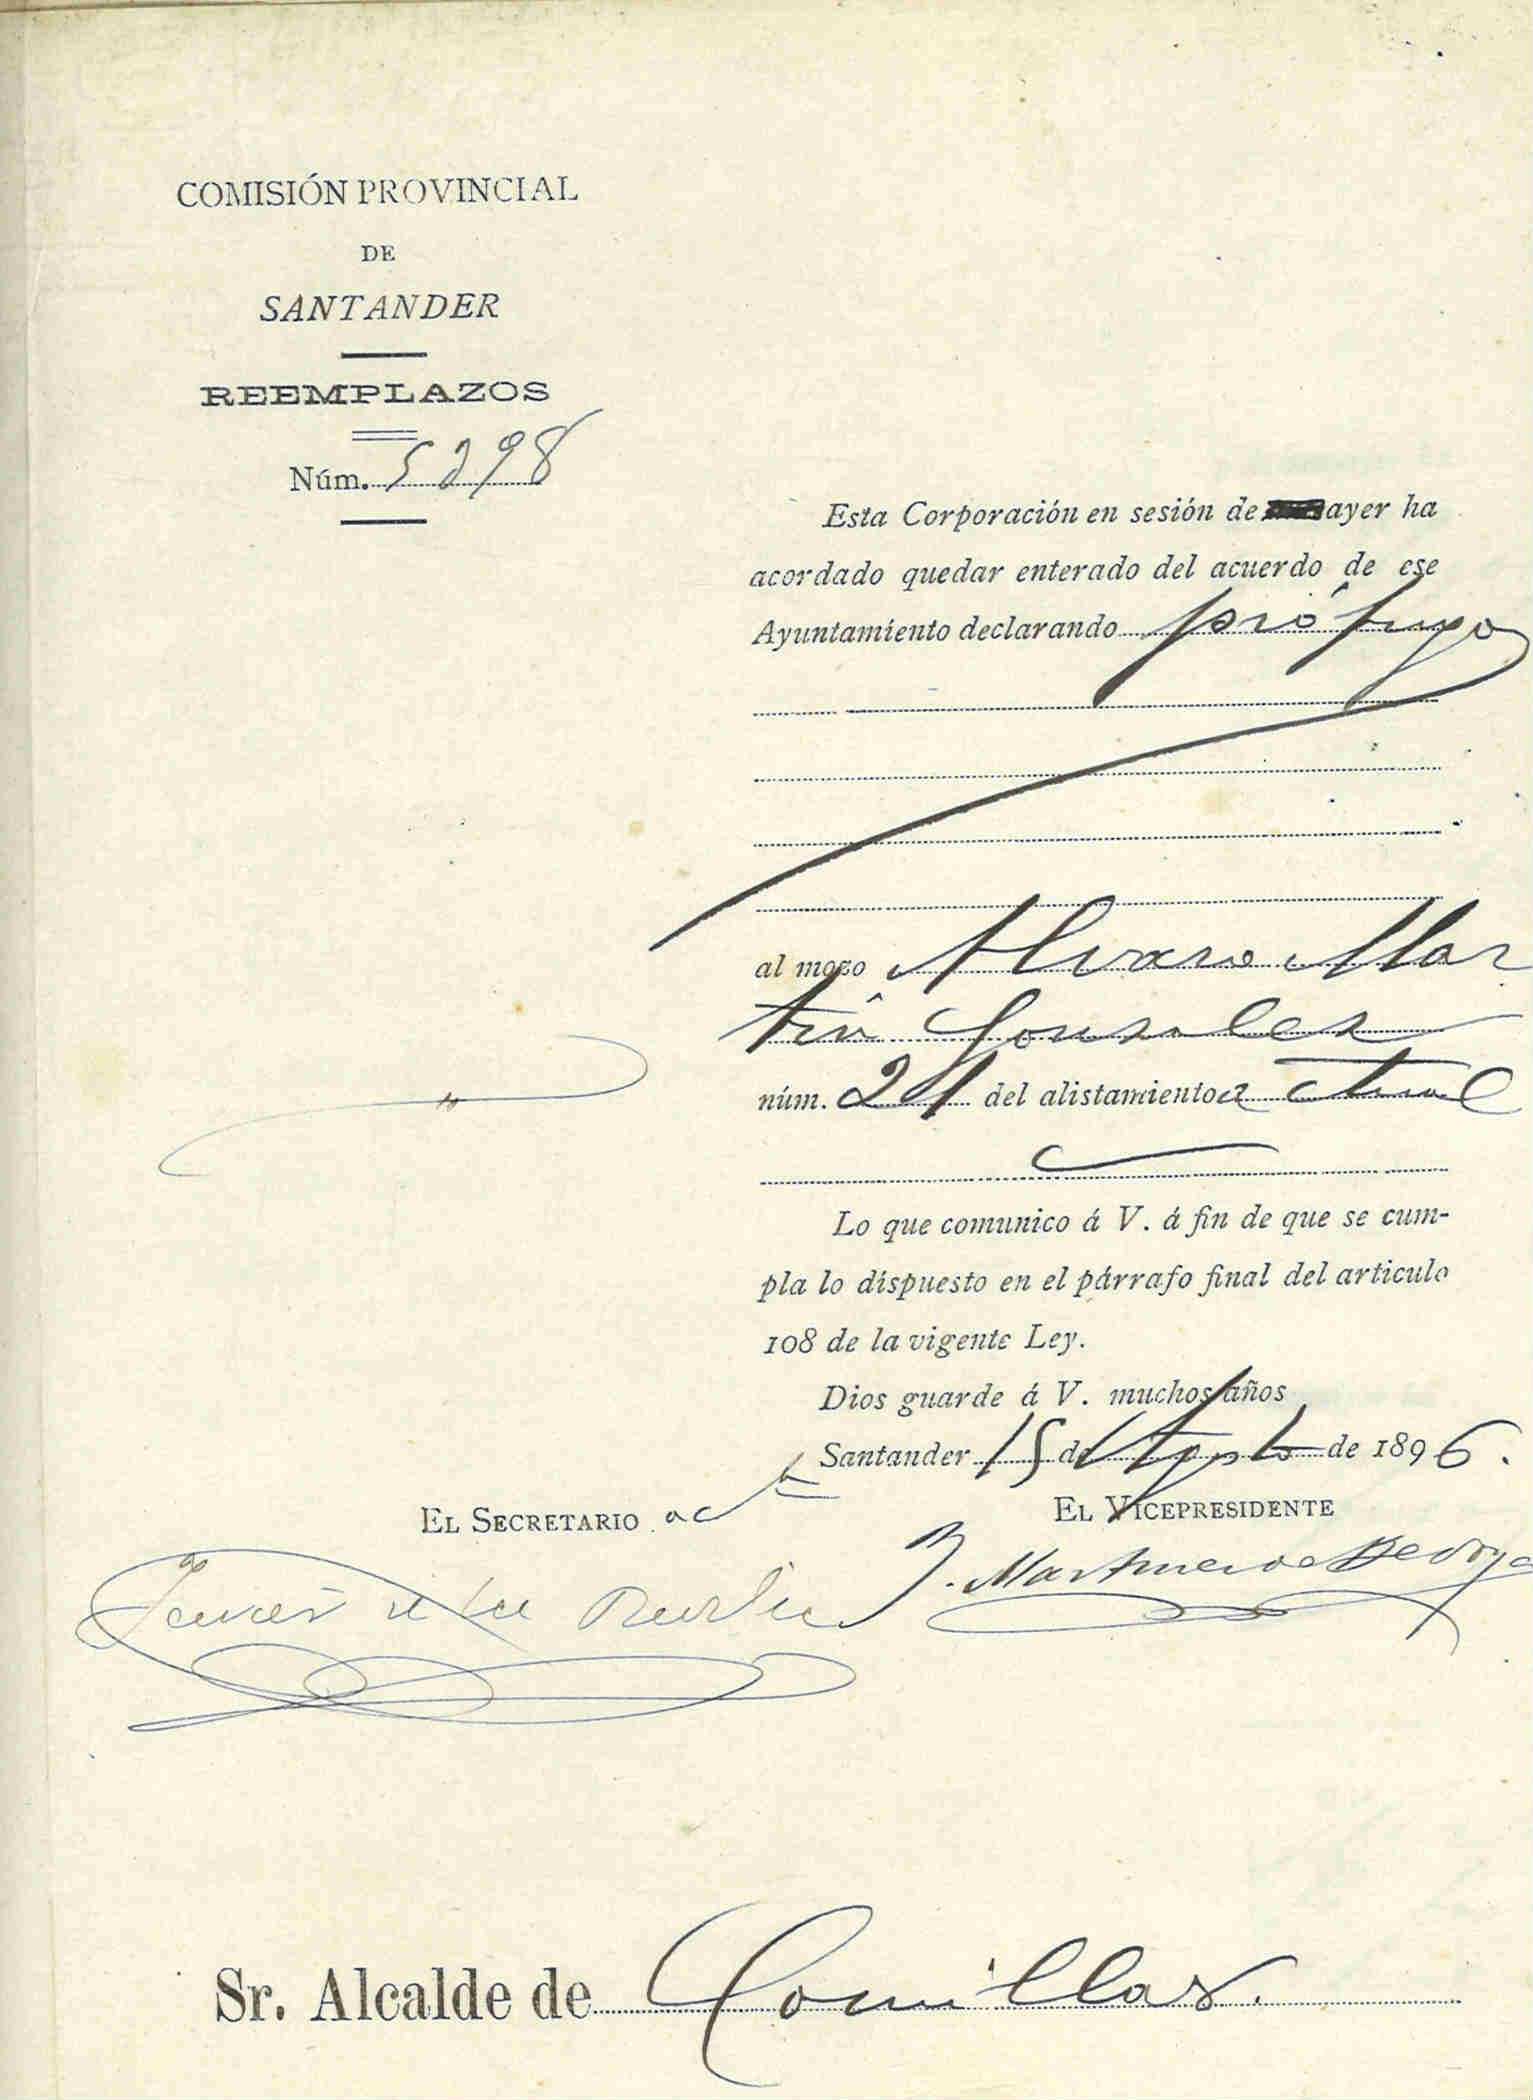 COMISIÓN PROVINCIAL
DE
SANTANDER
REEMPLAZOS
Núm. 5298
Esta Corporación en sesión de ayer ha
acordado quedar enterado del acuerdo de ese
Ayuntamiento declarando prófugo
al mozo Alvaro Mar
tín Gonzalez
núm. 21 del alistamiento actual
Lo que comunico á V. á fin de que se cum-
pla lo dispuesto en el párrafo final del articulo
108 de la vigente Ley.
Dios guarde á V. muchos años
Santander 15 de Agosto de 1896.
EL SECRETARIO
EL VICEPRESIDENTE
Martinez de Bedoya
Sr. Alcalde de Comillas.